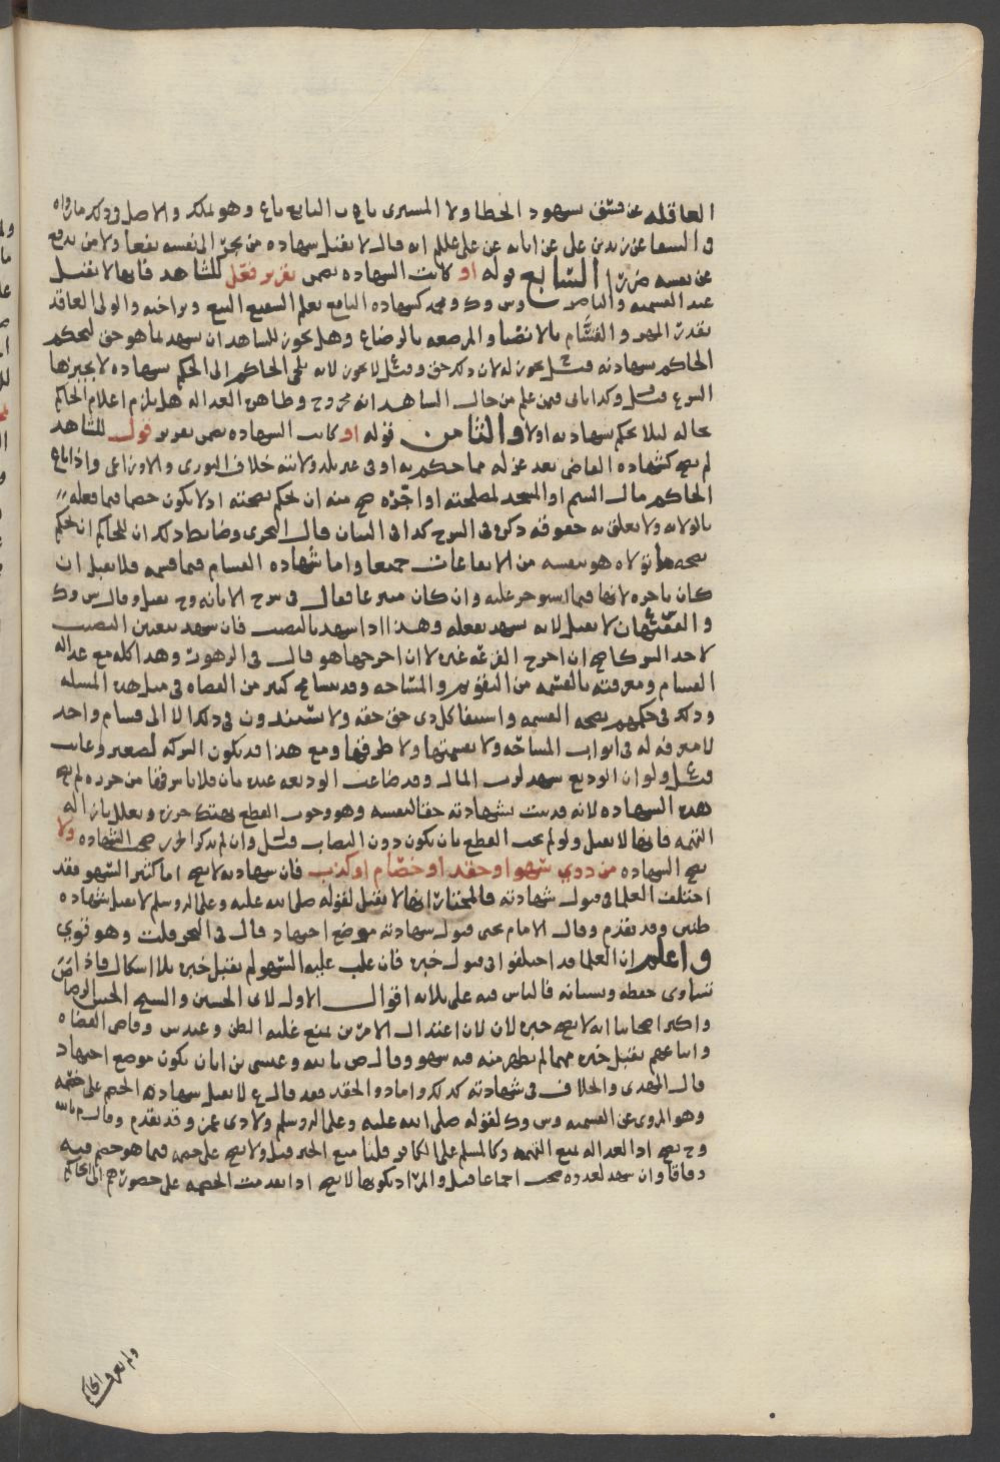 العاقله عن فسق شهود الخطا ولا المشترى بان البايع باع وهو لملكه والاصل في ذلك ما رواه
في الشفا عن زيد بن علي عن ابايه عن علي عللم انه قال لا تقبل شهاده من يجر الى نفسه نفعا ولا من يدفع
عن نفسه ضررا السابع قوله او كانت الشهاده تضمن تقرير فعل للشاهد فانها لا تقبل
عند القسميه والناصر وس وك ومحمد كشهاده البايع بعلم الشفيع البيع وتراخيه والولي العاقد
بقدر المهر والقسام بالانصبا والمرضعه بالرضاع وهل يجوز للشاهد ان يشهد بما هو حق ليحكم
الحاكم بشهادته قيل يجوز له لان ذلك حق وقيل لا يجوز لانه يلجي الحاكم الى الحكم بشهاده لا يجيزها
الشرع قيل وكذا ياتي فيمن علم من حال الشاهد انه مجروح وظاهره العداله هل يلزم اعلام الحاكم
بحاله ليلا يحكم بشهادته اولا والثامن قوله او كانت الشهاده تضمن تقرير قول للشاهد
لم يصح كشهاده القاضي بعد عزله مما حكم به او في غير بلد ولايته خلاف الثوري والاوزاعي واذا باع
الحاكم مال اليتيم او المسجد لمصلحته او اجره صح منه ان يحكم بصحته اذ لا يكون خصما فيما فعله
بالولايه ولا تعلق به حقوقه ذكره في الشرح كذا في البيان قال في البحرى وضابط ذلك ان للحاكم ان يحكم
بصحه ما تولاه هو بنفسه من الايقاعات جميعا واما شهاده القسام فيما قسمه فلا تقبل ان
كان باجره لانها فيما استوجر عليه وان كان متبرعا فقال في شرح الابانه وح تقبل وقال س وك
والفقيهان لا تقبل لانه يشهد بفعله وهذا اذا شهد بالنصيب فان شهد بتعيين النصيب
لاحد الشركا صح ان اخرج القرعه غيره لا ان اخرجها هو قال في الزهور وهذا كله مع عداله
القسام ومعرفته بالقسمه من التقويم والمساحه وقد يسامح كثير من القضاه في مثل هذه المسله
وذلك في حكمهم بصحه القسمه واستيفا كل ذي حق حقه ولا يستندون في ذلك الا الى قسام واحد
لا معرفه له في ابواب المساحه ولا بقسمتها ولا طرقها ومع هذا قد يكون الشركه لصغير وغايب
قيل ولو ان الوديع شهد لرب المال وقد ضاعت الوديعه عنده بان فلانا سرقها من حرزه لم تصح
هذه الشهاده لانه قد يثبت بشهادته حقا لنفسه وهو وجوب القطع بهتك حرزه وتعلل بازاله
التهمه فانها لا تقبل ولو لم يجب القطع بان يكون دون النصاب قيل وان لم يذكر الحرز صحت الشهاده ولا
تصح الشهاده من ذوي سهو او حقد او خصام او كذب فان شهادته لا تصح اما كثير السهو فقد
اختلف العلما في قبول شهادته فالمختار انها لا تقبل لقوله صلى الله عليه وعلى اله وسلم لا تقبل شهاده
ظنين وقد تقدم وقال الامام يحيى قبول شهادته موضع اجتهاد قال في البحر قلت وهو قوي
واعلم ان العلما قد اختلفوا في قبول خبره فان غلب عليه السهو لم يقبل خبره بلا اشكال فاذا
تساوى حفظه ونسيانه فالناس فيه على ثلاثه اقوال الاول لابي الحسين والشيخ الحسن الرصاص
واكثر اصحابنا انه لا يصح خبره لان اعتدال الامرين يمنع غلبه الظن وعند س وقاضي القضاه
واتباعهم يقبل خبره مهما لم يظهر منه فيه سهو وقال ص بالله وعيسى بن ابان يكون موضع اجتهاد
قال المهدي والخلاف في شهادته كذلك واما ذو الحقد فقد قال ع لا تقبل شهاده الخصم على خصمه
وهو المروي عن القسميه وس وك لقوله صلى الله عليه وعلى اله وسلم ولا ذي غمر وقد تقدم وقال م بالله
وح تصح اذ العداله تمنع التهمه وكالمسلم على الكافر قلنا منع الخبر قيل ولا تصح على خصمه فيما هو خصم فيه
وفاقا وان شهد لعدوه صحت اجماعا قيل والمراد بكونها لا تصح اذا تقدمت الخصمه على حضورهم الى الحاكم
ولم يعرف الحاكم